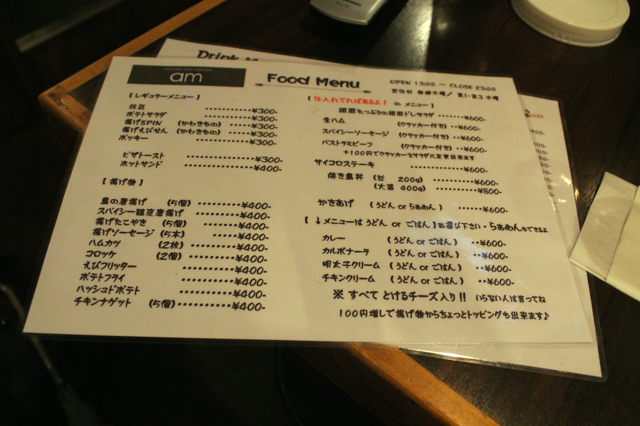 Drink M
am
Food Menu
OPEN 19:00 ~ CLOSE 25:00
【 レギュラーメニュー 】
枝豆 ¥300-
ポテトサラダ ¥300-
揚げSPIN (かわきもの) ¥300-
揚げえびせん (かわきもの) ¥300-
ポッキー ¥300-
ピザトースト ¥300-
ホットサンド ¥400-
【 揚げ物 】
鳥の唐揚げ (5個) ¥400-
スパイシー唐揚げ ¥400-
揚げたこやき (5個) ¥400-
揚げソーセージ (5本) ¥400-
ハムカツ (2枚) ¥400-
コロッケ (2個) ¥400-
えびフリッター ¥400-
ポテトフライ ¥400-
ハッシュドポテト ¥400-
チキンナゲット (5個) ¥400-
【仕入れてればあるよ! の メニュー 】
胡麻たっぷりの胡麻ドレサラダ ¥600-
生ハム (クラッカー付き) ¥600-
スパイシーソーセージ (クラッカー付き) ¥600-
パストラミビーフ (クラッカー付き) ¥600-
+100円でクラッカーをサラダに変更出来ます
サイコロステーキ ¥600-
焼き鳥丼 (並 200g) ¥600-
(大盛 400g) ¥800-
かきあげ (うどん or らぁめん) ¥600-
【 ↓メニューは うどん or ごはん】お選び下さい・らぁめんもできるよ
カレー (うどん or ごはん) ¥600-
カルボナーラ (うどん or ごはん) ¥600-
明太子クリーム (うどん or ごはん) ¥600-
チキンクリーム (うどん or ごはん) ¥600-
※ すべて とけるチーズ入り!! いらない人は言ってね
100円増しで揚げ物からちょっとトッピングも出来ます♪